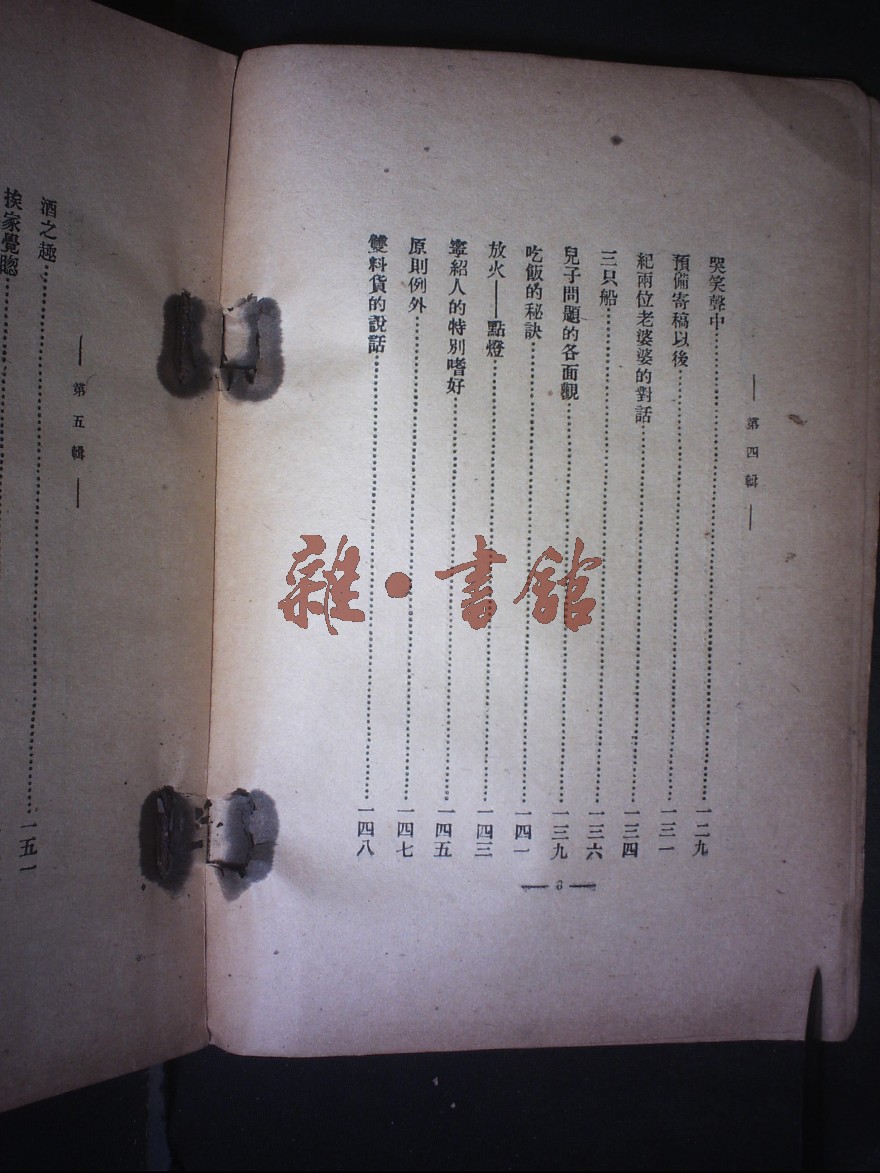 ——第四輯——
哭笑聲中……一二九
預備寄稿以後……一三一
紀兩位老婆婆的對話……一三四
三只船……一三六
兒子問題的各面觀……一三九
吃飯的秘訣……一四一
放火——點燈……一四三
寧紹人的特別嗜好……一四五
原則例外……一四七
雙料貨的說話……一四八
—3—
——第五輯——
酒之趣……一五一
挨家覺聰
雜·書館